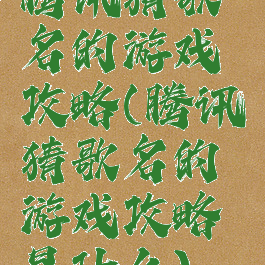 腾讯猜歌
名的游戏
攻略(腾讯
猜歌名的
游戏攻略
是什么)